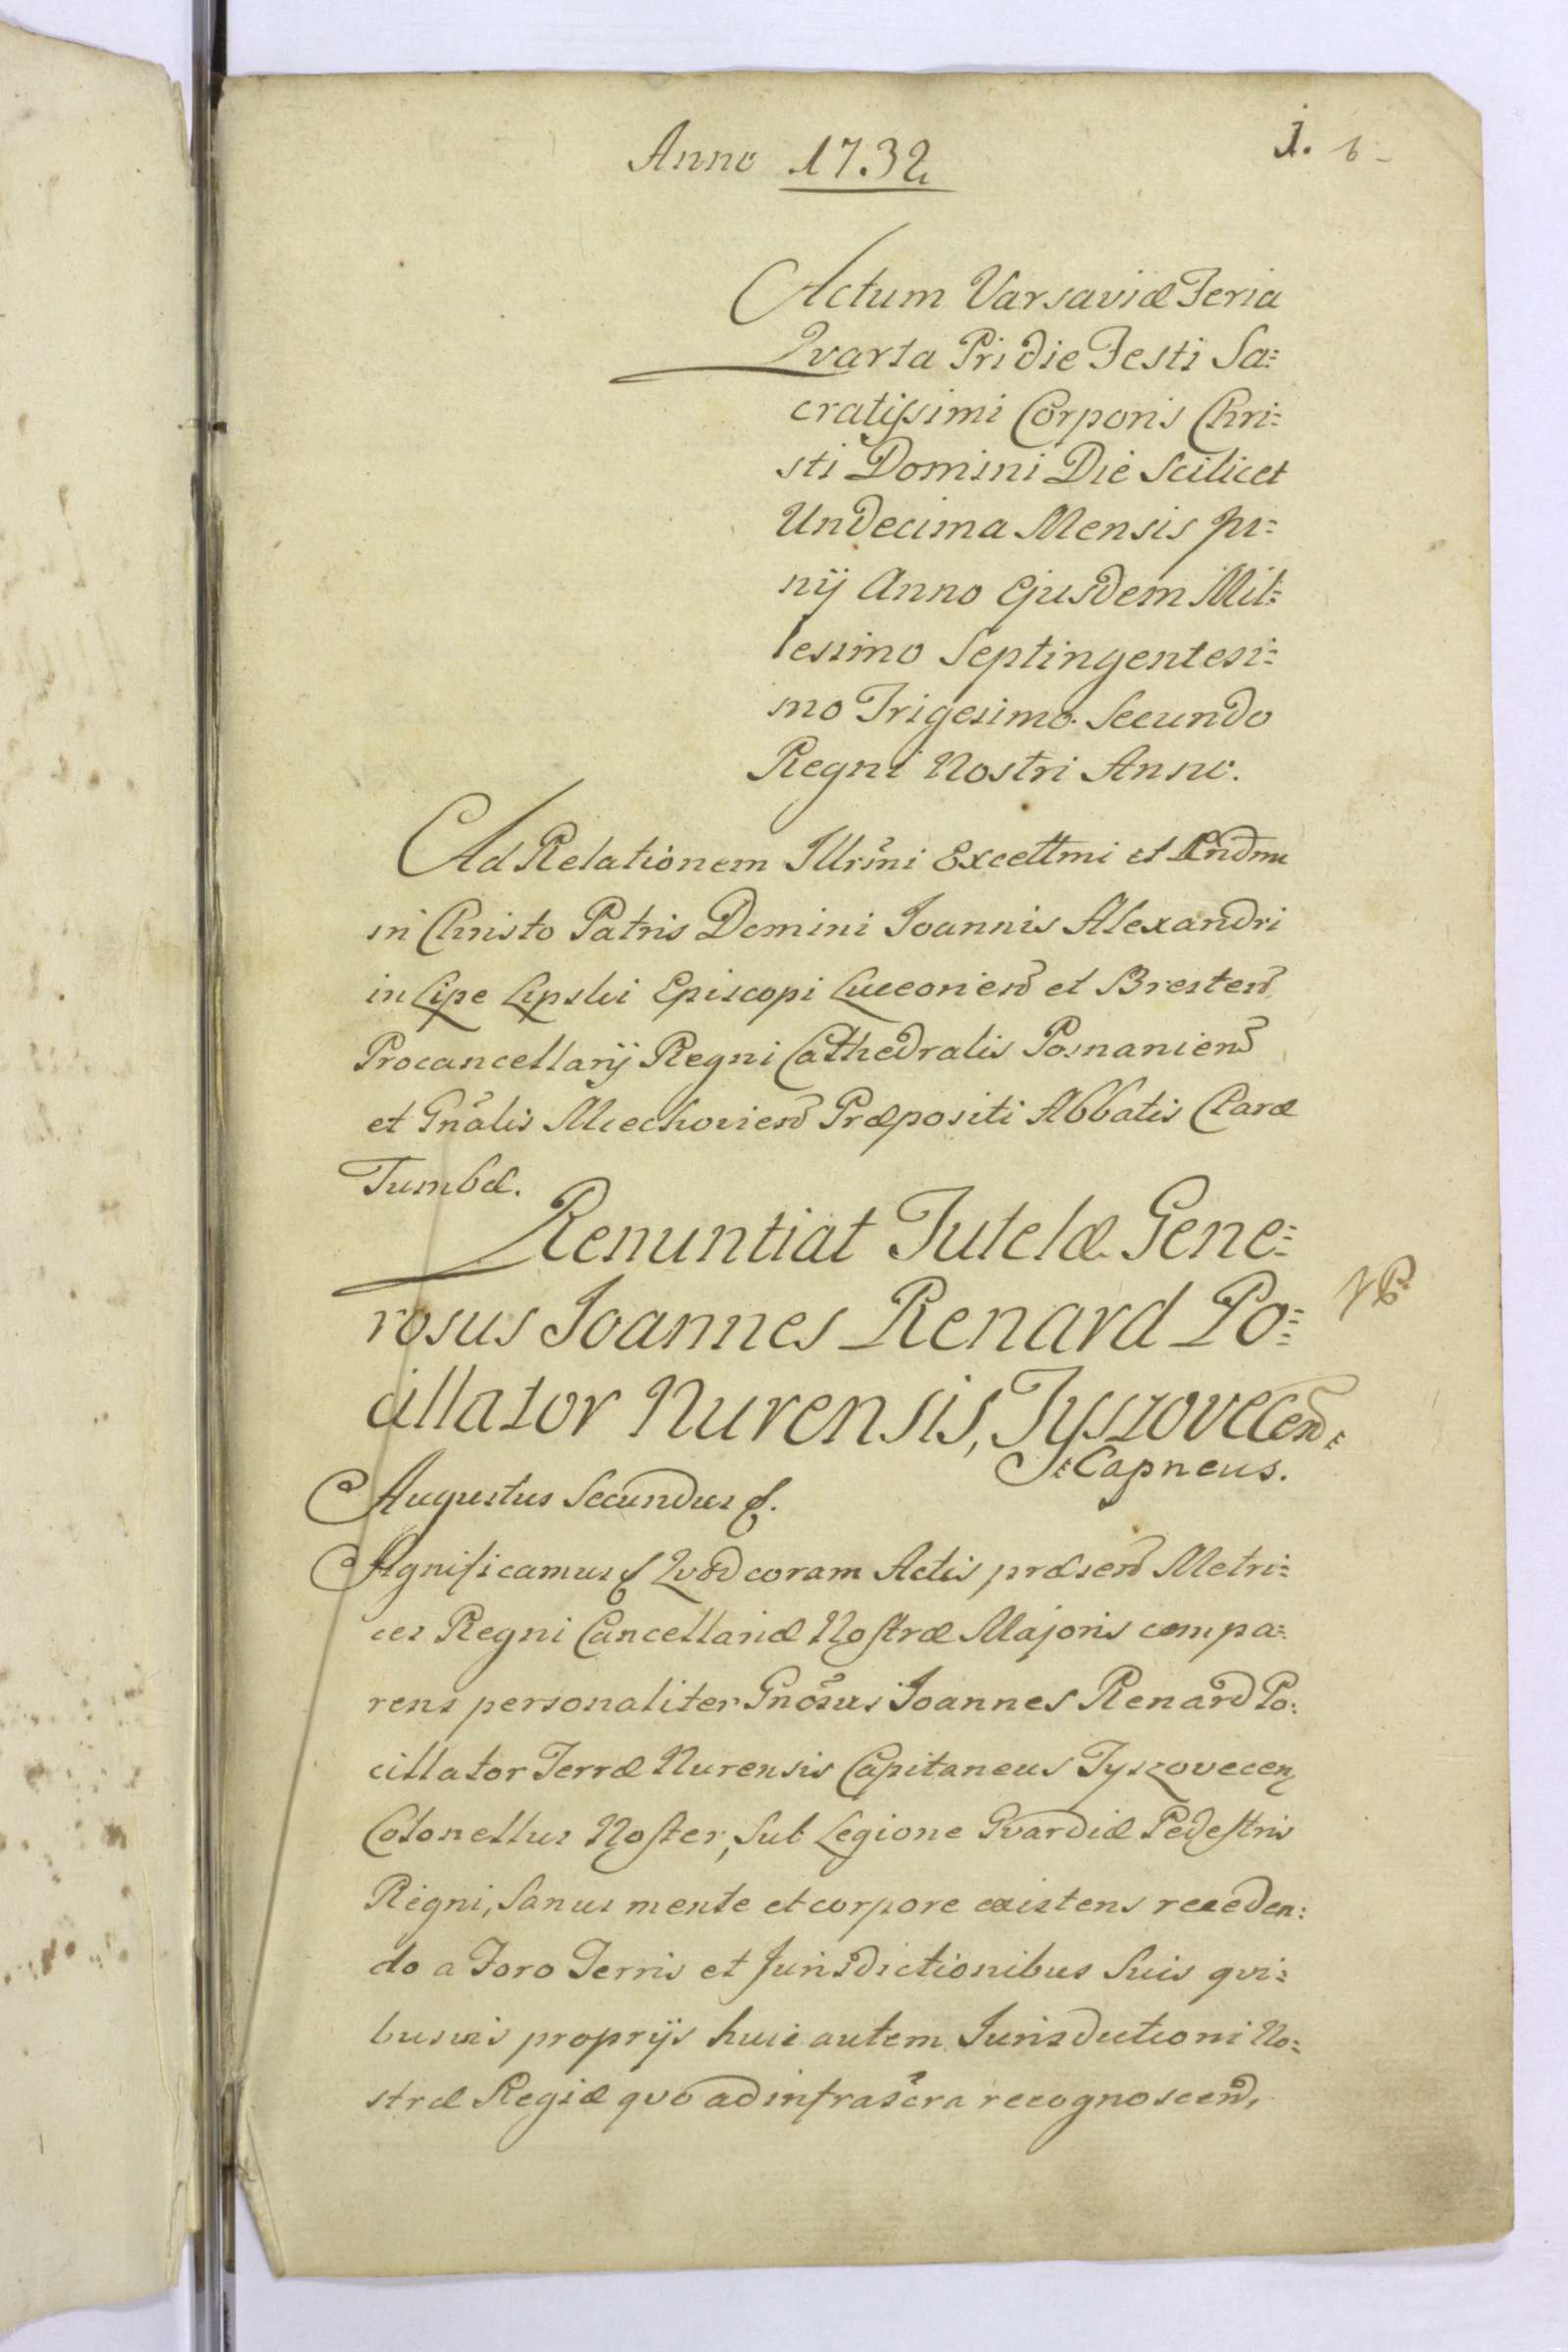 Anno 1732.
1. 6
Actum Varsaviæ Feria
Qvarta Pridie Festi Sa=
cratissimi Corporis Chri=
sti Domini Die Scilicet
Undecima Mensis Ju=
nij Anno Ejusdem Mil=
lesimo Septingentesi=
mo Trigesimo Secundo
Regni Nostri Anno.
Ad Relationem Illrmi Excellmi et Rndmi
in Christo Patris Domini Joannis Alexandri
in Lipe Lipski Episcopi Luceorien et Bresten
Procancellarij Regni Cathedralis Posnanien
et Gnalis Miechovien Præpositi Abbatis Claræ
Tumbæ.
Renuntiat Tutelæ Gene=
rosus Joannes Renard Po=
cillator Nurensis, Tyszovecen=
=Capneus.
Augustus Secundus
Significamus Qvod coram Actis præsen Metri=
ces Regni Cancellariæ Nostræ Majoris compa=
rens personaliter Gnosus Joannes Renard Po=
cillator Terræ Nurensis Capitaneus Tyszovecen
Colonellus Noster, Sub Legione Gvardiæ Pedestris
Regni, Sanus mente et corpore existens receden=
do a Foro Terris et Jurisdictionibus Suis qvi=
busvis proprijs huic autem Jurisdictioni No=
stræ Regiæ qvo ad infrascra recognoscen,